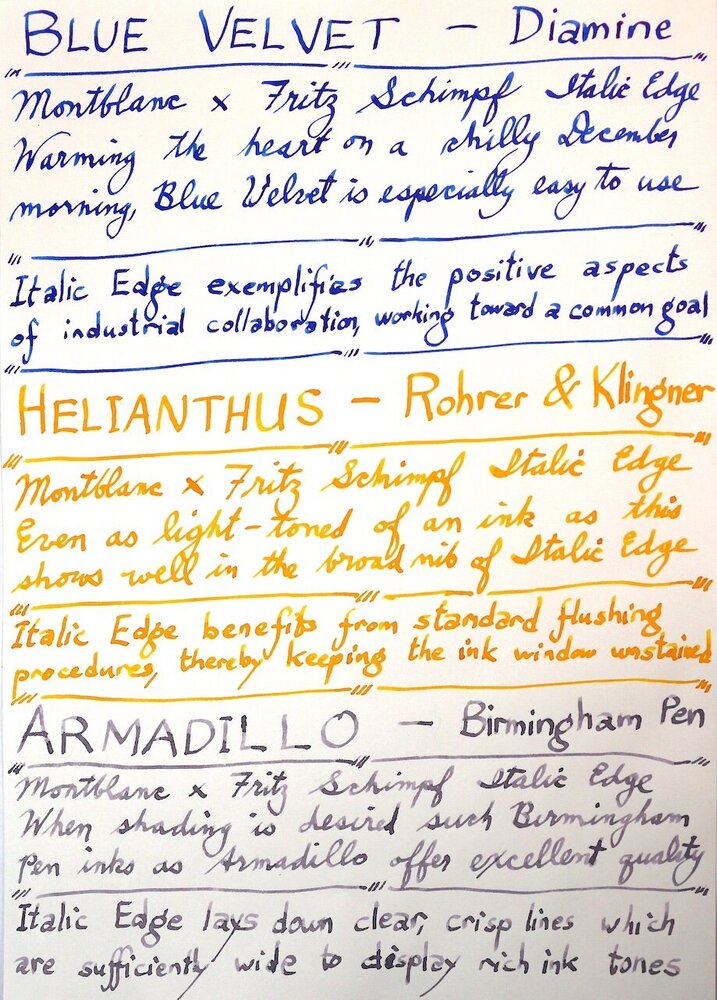 BLUE VELVET – Diamine
Montblanc x Fritz Schimpf Italic Edge
Warming the heart on a chilly December
morning, Blue Velvet is especially easy to use
Italic Edge exemplifies the positive aspects
of industrial collaboration, working toward a common goal
HELIANTHUS – Rohrer & Klingner
Montblanc x Fritz Schimpf Italic Edge
Even as light-toned of an ink as this
shows well in the broad nib of Italic Edge
Italic Edge benefits from standard flushing
procedures, thereby keeping the ink window unstained
ARMADILLO – Birmingham Pen
Montblanc x Fritz Schimpf Italic Edge
When shading is desired such Birmingham
Pen inks as Armadillo offer excellent quality
Italic Edge lays down clear, crisp lines which
are sufficiently wide to display rich ink tones